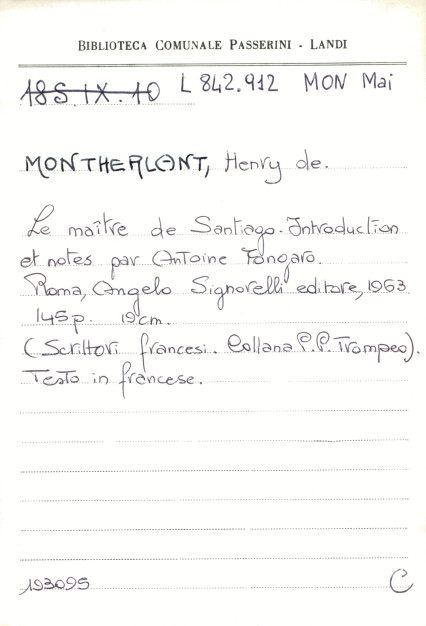 BIBLIOTECA COMUNALE PASSERINI - LANDI
18S.IX.10 L 842.912 MON Mai
MONTHERLANT, Henry de.
Le maître de Santiago. Introduction
et notes par Antoine Fongaro.
Roma, Angelo Signorelli editore, 1963.
145p. 19cm.
(Scrittori francesi. Collana P.P. Trompeo).
Testo in francese.
193095 C